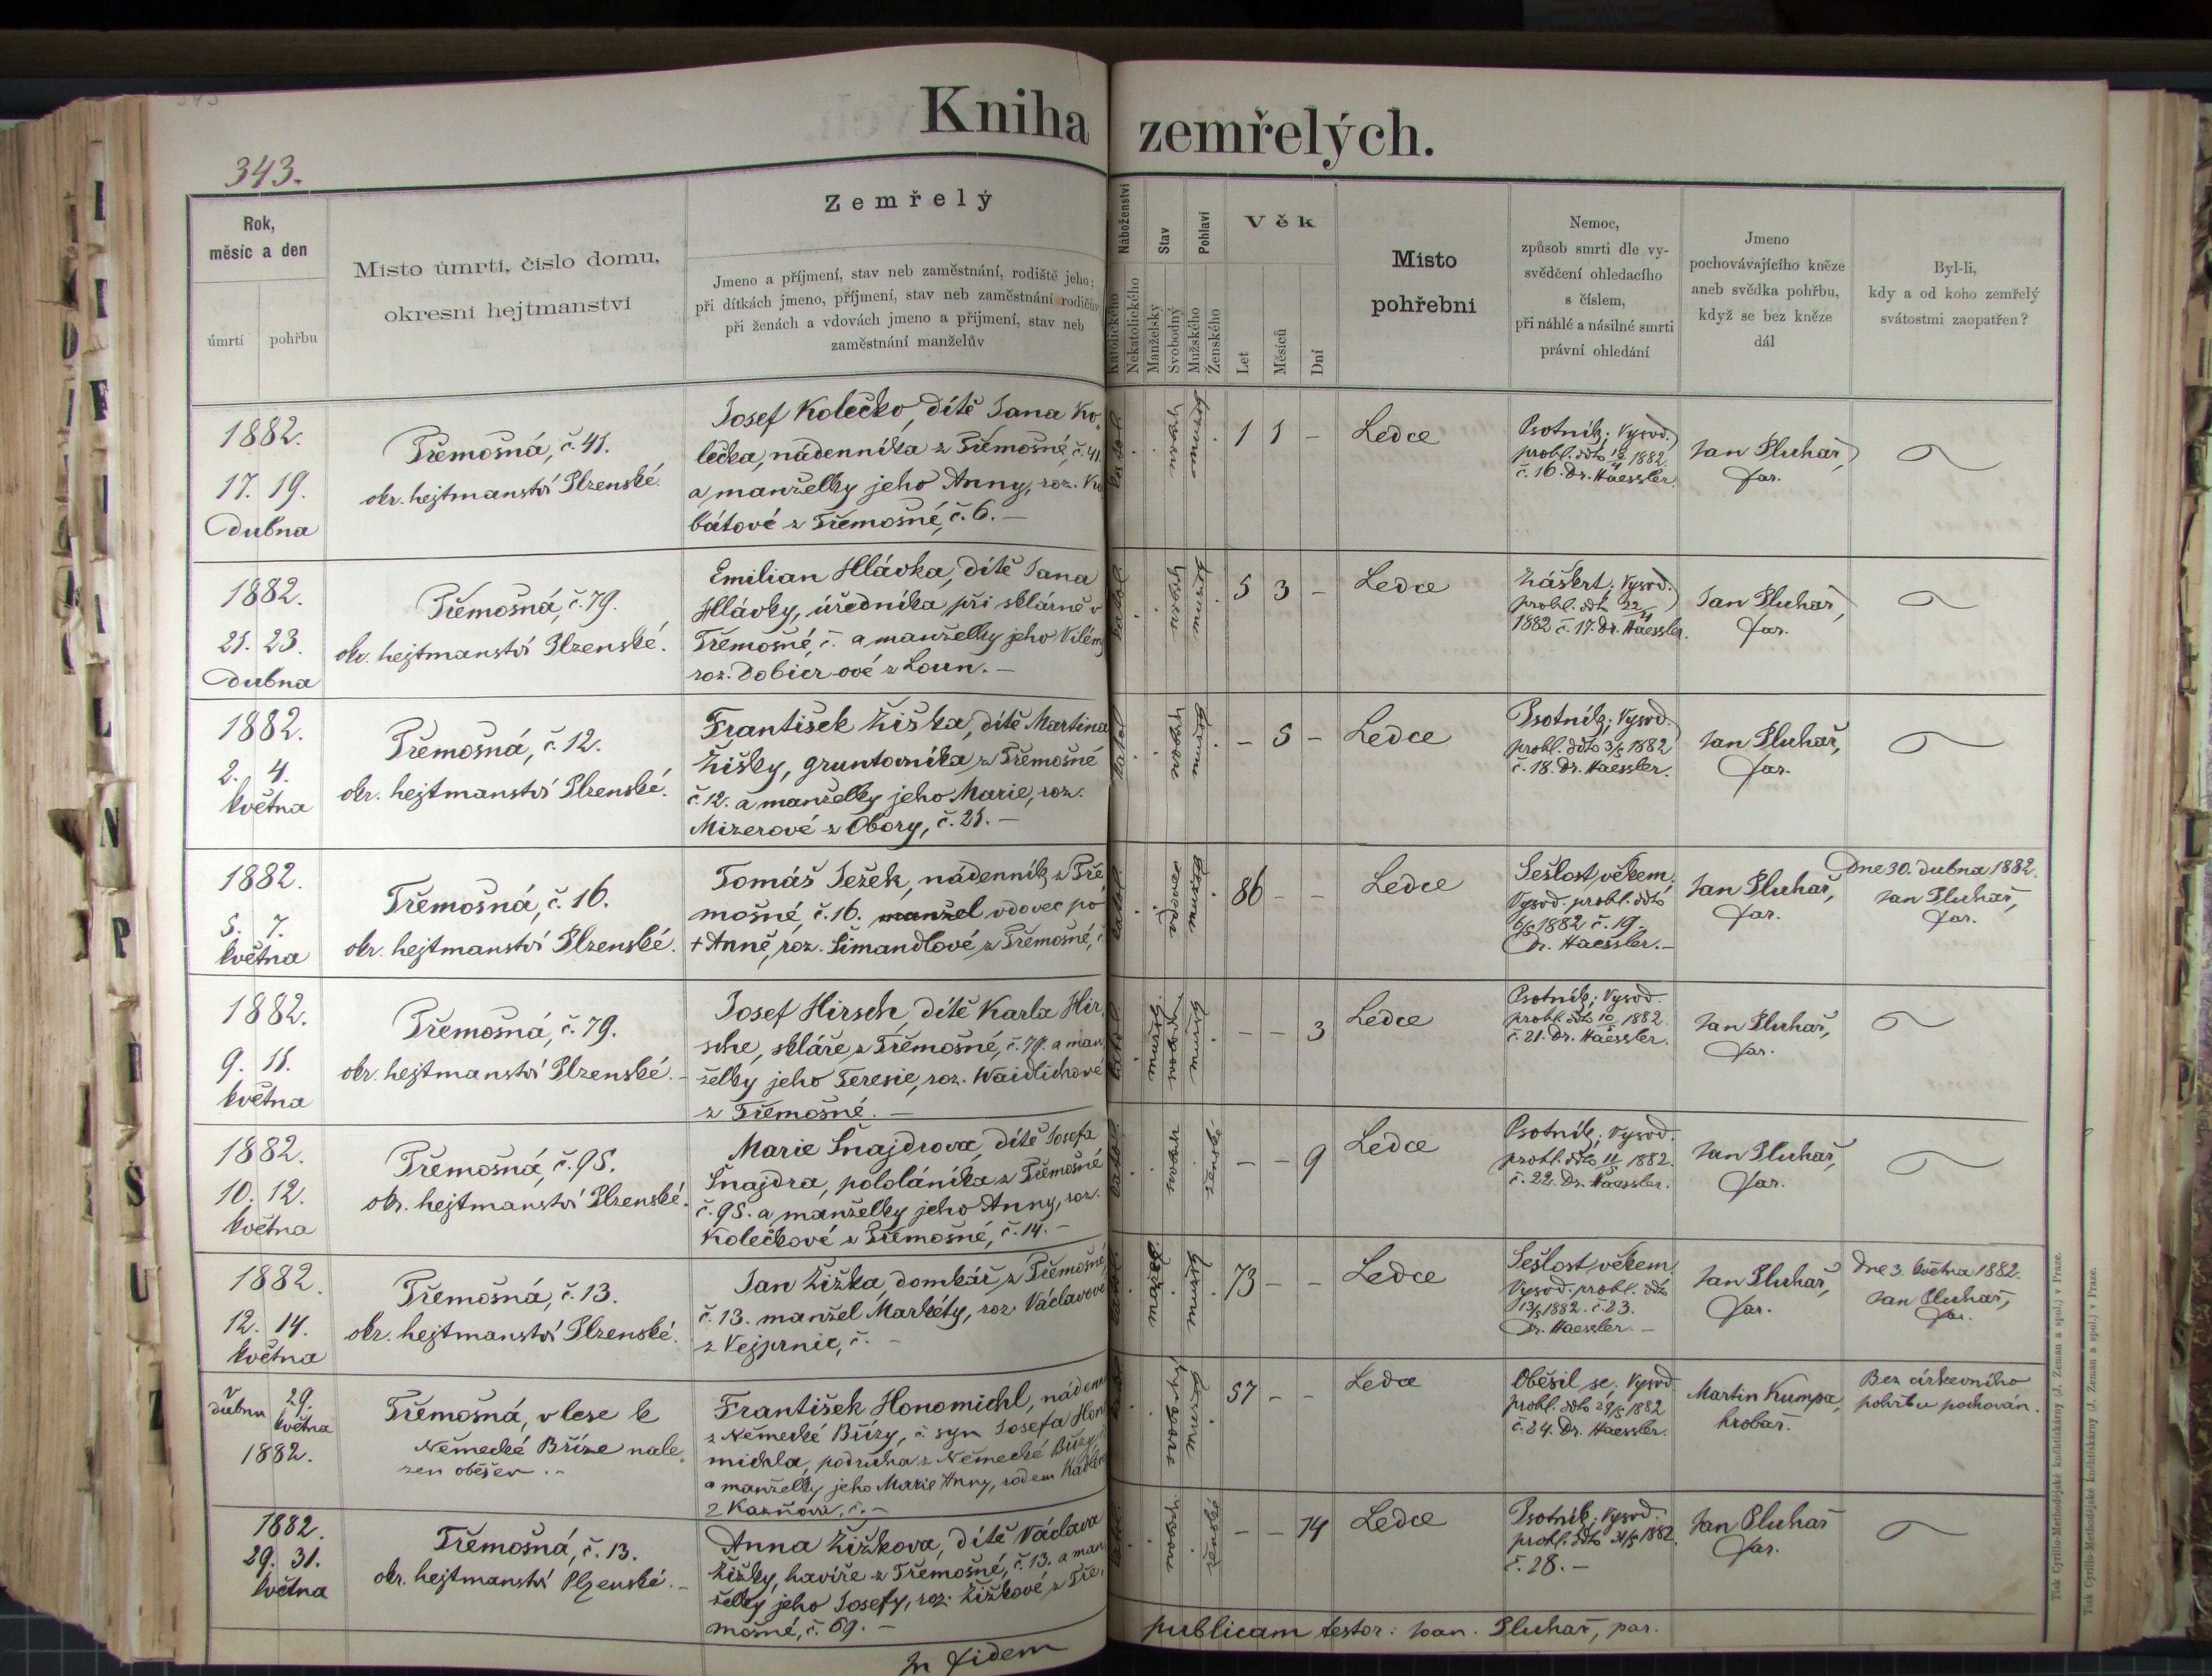 Kniha zemřelých.
343.
Rok,
měsíc a den
úmrtí
pohřbu
Místo úmrtí, číslo domu,
okresní hejtmanství
Zemřelý
Jmeno a příjmení, stav neb zaměstnání, rodiště jeho;
při dítkách jmeno, příjmení, stav neb zaměstnání rodičův
při ženách a vdovách jmeno a příjmení, stav neb
zaměstnání manželův
Náboženství
Katolického
Nekatolického
Stav
Manželský
Svobodný
Pohlaví
Mužského
Ženského
Věk
Let
Měsíců
Dní
Místo
pohřební
Nemoc,
způsob smrti dle vy-
svědčení ohledacího
s číslem,
při náhlé a násilné smrti
právní ohledání
Jmeno
pochovávajícího kněze
aneb svědka pohřbu,
když se bez kněze
dál
Byl-li,
kdy a od koho zemřelý
svátostmi zaopatřen?
1882.
17. 19.
Dubna
Třemošná, č. 41.
okr. hejtmanství Plzenské.
Josef Kolečko, dítě Jana Ko-
lečka, nádenníka z Třemošné, č. 41.
a manželky jeho Anny, roz. Ko
bátové z Třemošné, č. 6. —
1 1 –
Ledce
Psotník; Vysvd.
probl. ddto 18/4 1882.
č. 16. Dr. Haessler.
Jan Pluhař,
far.
1882.
21. 23.
Dubna
Třemošná, č. 79.
okr. hejtmanství Plzenské.
Emilian Hlávka, dítě Jana
Hlávky, úředníka při sklárně v
Třemošné, č. a manželky jeho Vilém
roz. Dobier ové z Loun. —
5 3 –
Ledce
Záškrt. Vysvd.
probl. ddto 22/4
1882 č. 17. Dr. Haessler.
Jan Pluhař,
far.
1882.
2. 4.
května
Třemošná, č. 12.
okr. hejtmanství Plzenské.
František Žiška, dítě Martina
Žišky, gruntovníka z Třemošné
č. 12. a manželky jeho Marie, roz.
Mizerové z Obory, č. 21. —
– 5 –
Ledce
Psotník; Vysvd.
probl. ddto 3/5 1882
č. 18. Dr. Haessler.
Jan Pluhař,
far.
1882.
5. 7.
května
Třemošná, č. 16.
okr. hejtmanství Plzenské.
Tomáš Ježek, nádenník z Tře
mošné, č. 16. manžel vdovec po
+ Anně, roz. Šimandlové z Třemošné, č
86 – –
Ledce
Sešlost věkem.
Vysvd. probl. ddto
6/5 1882 č. 19.
Dr. Haessler. —
Jan Pluhař,
far.
Dne 30. dubna 1882.
Jan Pluhař,
far.
1882.
9. 11.
května
Třemošná, č. 79.
okr. hejtmanství Plzenské. –
Josef Hirsch, dítě Karla Hir
sche, skláře z Třemošné, č. 79. a man
želky jeho Teresie, roz. Waidlichové
z Třemošné. —
– – 3
Ledce
Psotník; Vysvd.
probl. ddto 10/5 1882.
č. 21. Dr. Haessler.
Jan Pluhař,
far.
1882.
10. 12.
května
Třemošná, č. 95.
okr. hejtmanství Plzenské.
Marie Šnajdrova, dítě Josefa
Šnajdra, pololáníka z Třemošné
č. 95. a manželky jeho Anny, roz.
Kolečkové z Třemošné, č. 14. –
– – 9
Ledce
Psotník; Vysvd.
probl. ddto 11/5 1882.
č. 22. Dr. Haessler.
Jan Pluhař,
far.
1882.
12. 14.
května
Třemošná, č. 13.
okr. hejtmanství Plzenské.
Jan Žižka, domkář z Třemošné,
č. 13. manžel Markéty, roz. Václavové
z Vejprnic, č. –
73 – –
Ledce
Sešlost věkem.
Vysvd. probl. ddto
13/5 1882. č. 23.
Dr. Haessler. –
Jan Pluhař,
far.
Dne 3. května 1882.
Jan Pluhař,
far.
v dubnu
29. května
1882.
Třemošná, v lese k
Německé Bříze nale-
zen oběšen. –
František Honomichl, náden
z Německé Břízy, č. syn Josefa Hono
michla, podruha z Německé Břízy
a manželky jeho Marie Anny, rodem
z Kaznova, č. –
57 – –
Ledce
Oběsil se. Vysvd
probl. ddto 29/5 1882
č. 24. Dr. Haessler.
Martin Kumpa,
hrobař.
Bez církevního
pohřbu pochován.
1882.
29. 31.
května
Třemošná, č. 13.
okr. hejtmanství Plzenské. –
Anna Žižkova, dítě Václava
Žižky, havíře z Třemošné, č. 13. a man
želky jeho Josefy, roz. Žižkové z Tře-
mošné, č. 69. –
– – 14
Ledce
Psotník; Vysvd.
probl. ddto 31/5 1882.
č. 28. –
Jan Pluhař
far.
In fidem publicam testor: Joan. Pluhař, par.
Tisk Cyrillo-Methodějské knihtiskárny (J. Zeman a spol.) v Praze.
Tisk Cyrillo-Methodějské knihtiskárny (J. Zeman a spol.) v Praze.